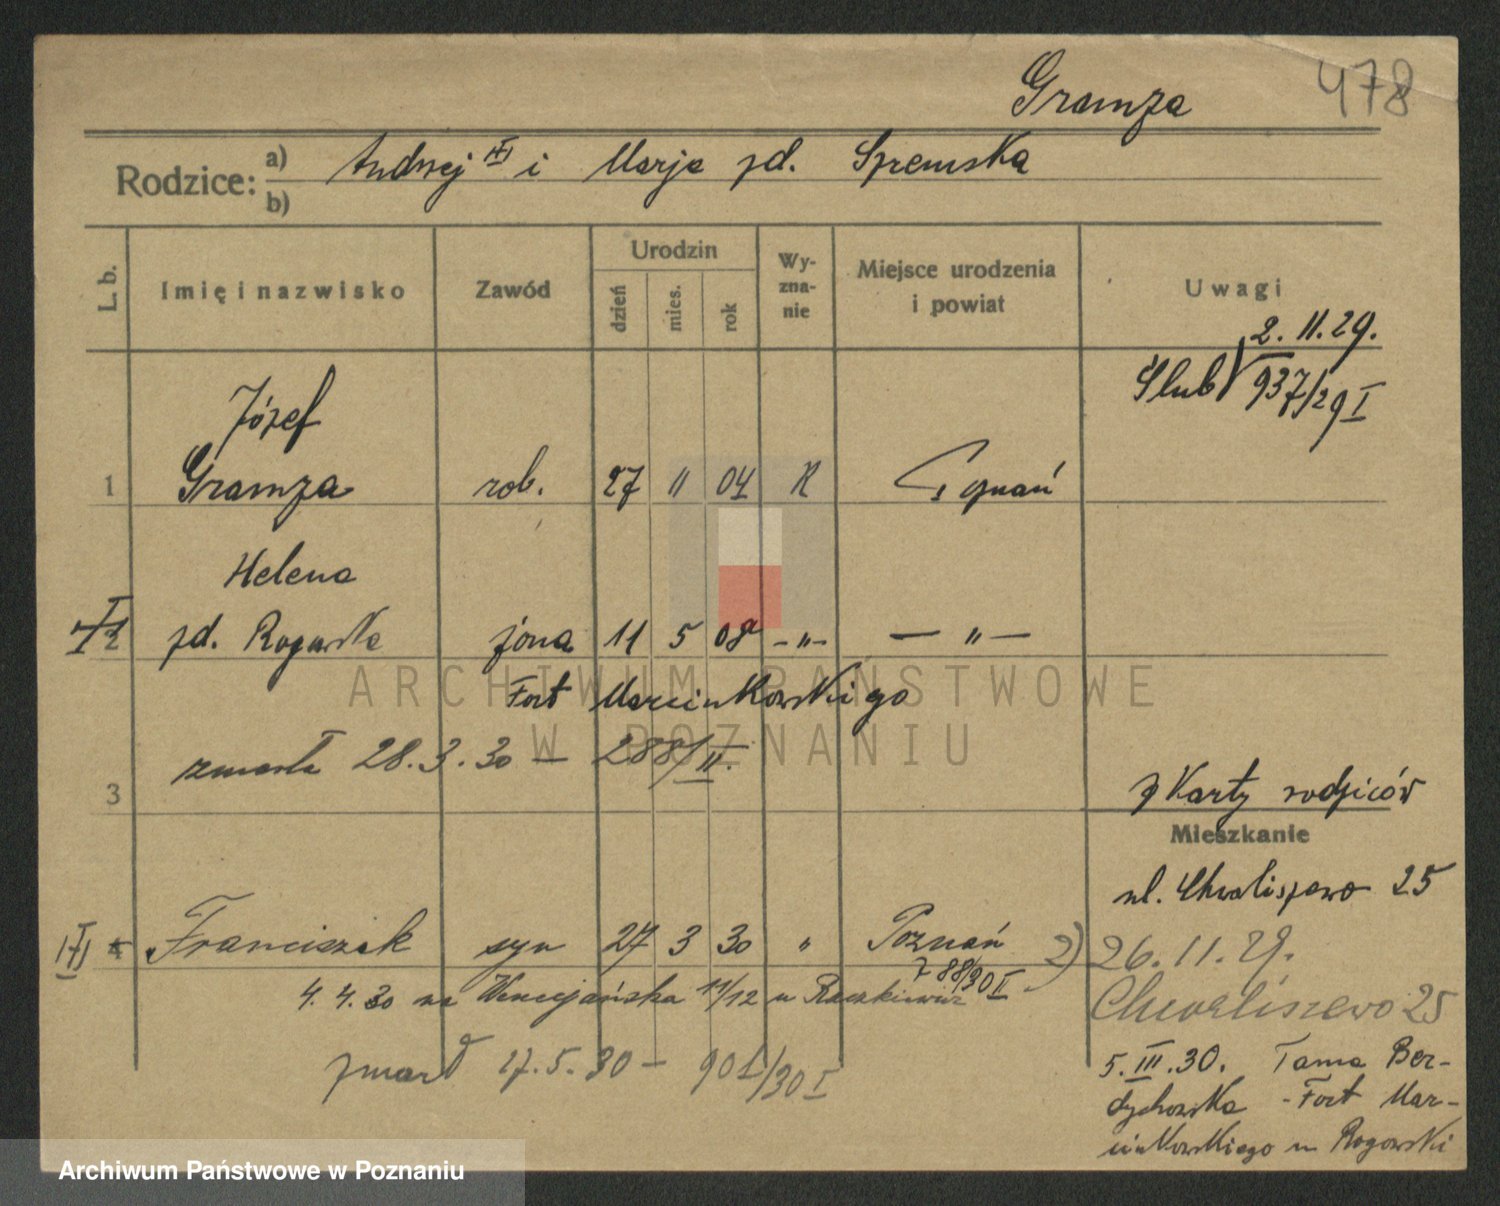 Gramza
478
Rodzice:
a) Andrzej i Marja zd. Spremska
b)
L. b.
Imię i nazwisko
Zawód
Urodzin
dzień
mies.
rok
Wy-
zna-
nie
Miejsce urodzenia
i powiat
Uwagi
2. 11. 29.
Ślub 937/29 I
Józef
1 Gramza rob. 27 11 04 R Poznań
Helena
2 zd. Rogowska żona 11 5 08 - " - - " -
Fort Marcinkowskiego
zmarła 28.3.30 — 288/II.
3
z Karty rodziców
Mieszkanie
ul. Chwaliszewo 25
4 Franciszek syn 27 3 30 " Poznań
788/30 I
2) 26.11.29.
Chwaliszewo 25
4.4.30 na Wenecjańska 11/12 u Raczkiewicz
5.III.30. Tama Ber-
dychowska - Fort Mar-
cinkowskiego u Rogowski
zmarł 17.5.30 — 901/30 I
ARCHIWUM PAŃSTWOWE
W POZNANIU
Archiwum Państwowe w Poznaniu